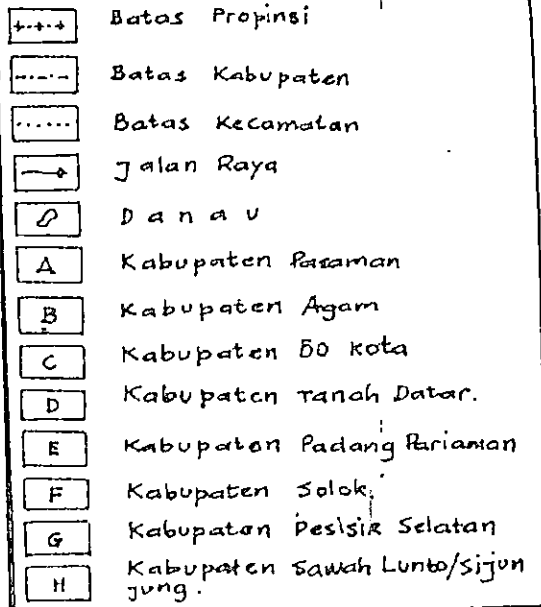 Batas Propinsi
Batas Kabupaten
Batas Kecamatan
Jalan Raya
Danau
A Kabupaten Pasaman
B Kabupaten Agam
C Kabupaten 50 Kota
D Kabupaten Tanah Datar.
E Kabupaten Padang Pariaman
F Kabupaten Solok.
G Kabupaten Pesisir Selatan
H Kabupaten Sawah Lunto/Sijun
jung.